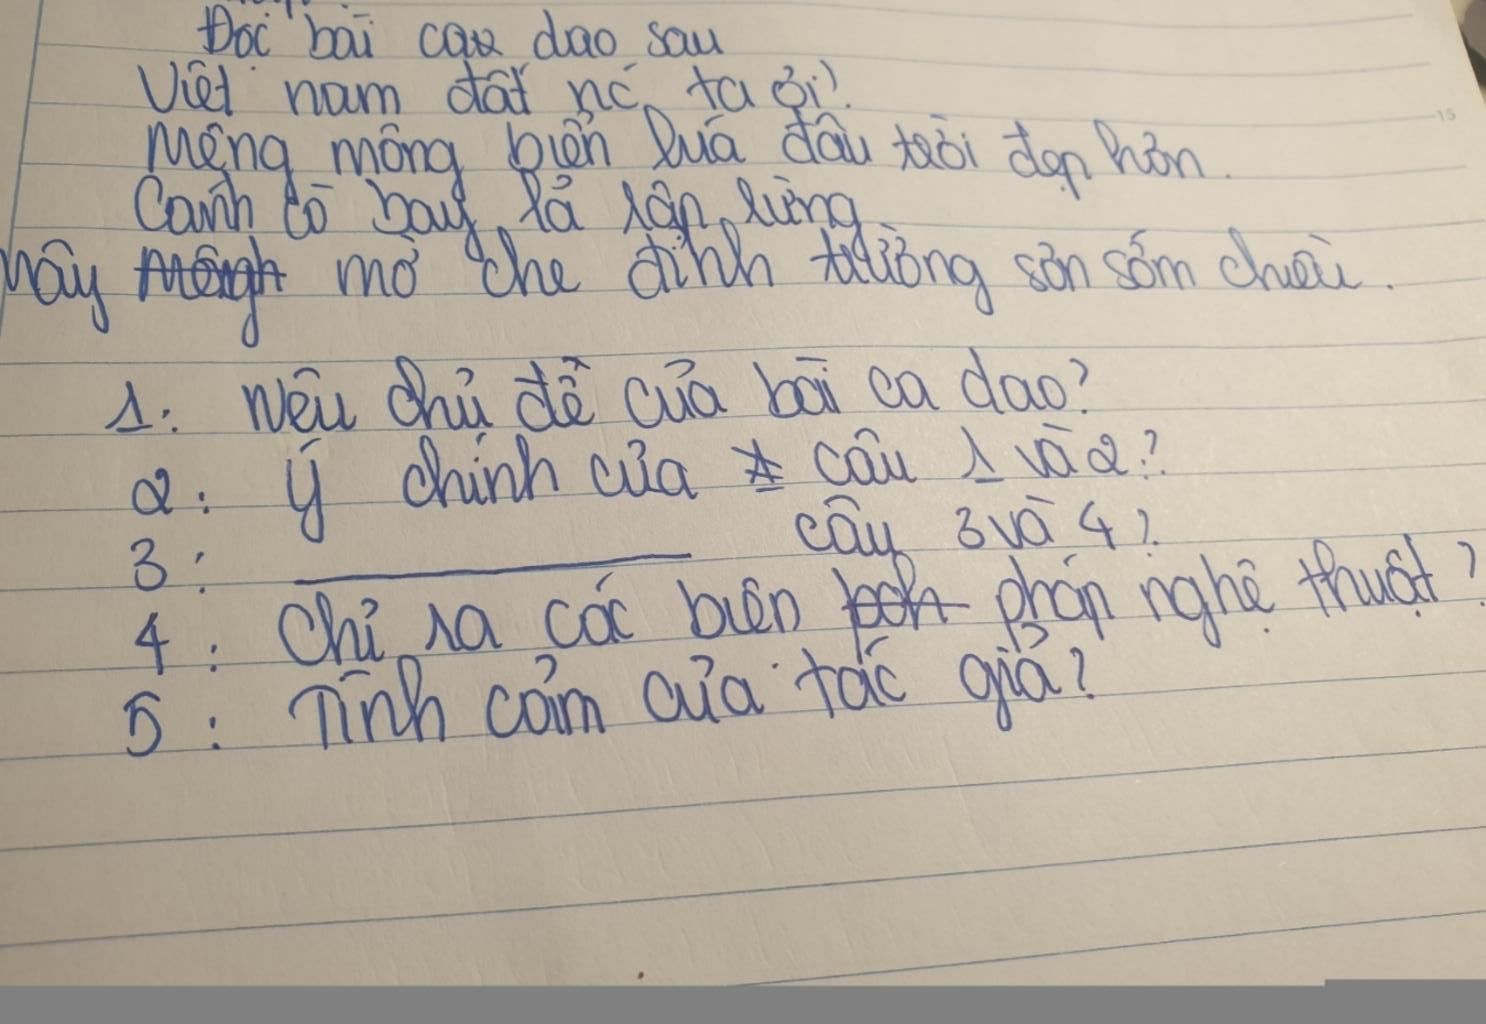 Đọc bài ca dao sau
Việt nam đất nc ta ơi!
Mênh mông biển lúa đâu trời đẹp hơn.
Cánh cò bay lả rập rùng
Mây mờ che đỉnh trường sơn sớm chiều.
1: Nêu chủ đề của bài ca dao?
2: Ý chính của câu 1 và 2?
3: ________ câu 3 và 4?
4: Chỉ ra các biện pháp nghệ thuật?
5: Tình cảm của tác giả?